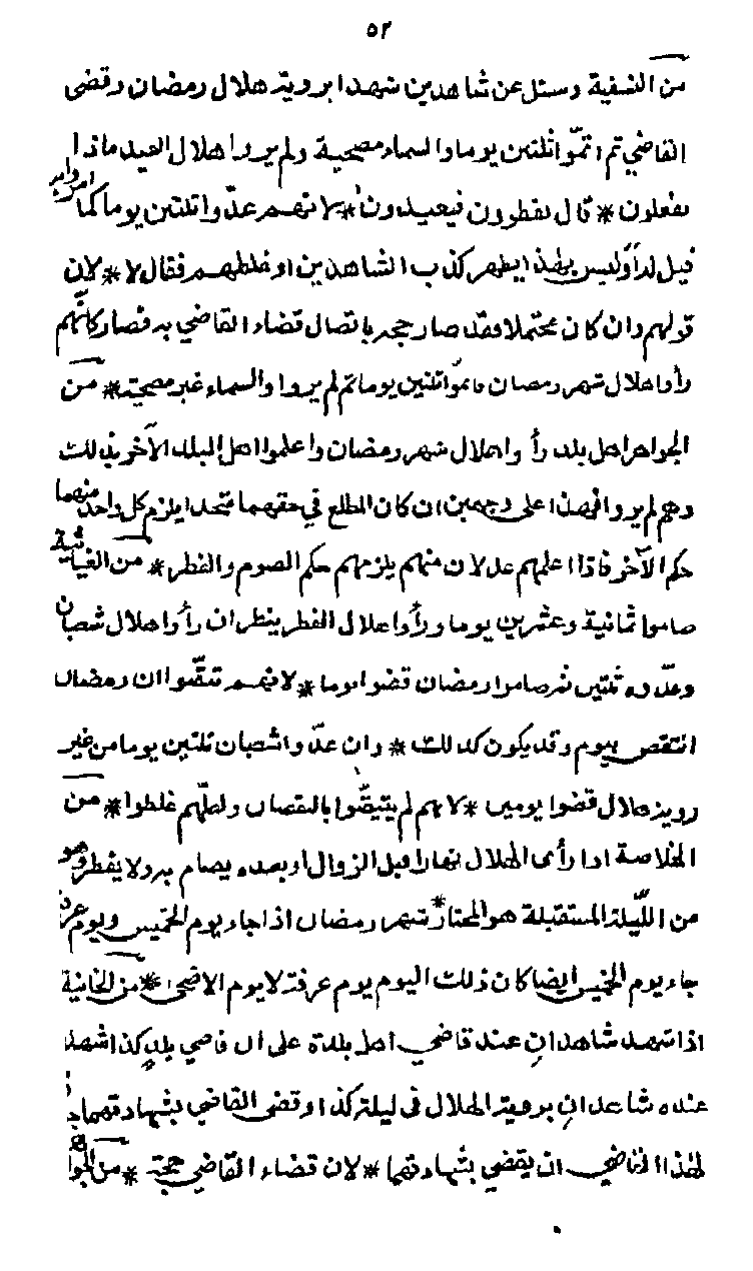 ٥٢
من النسفية وسئل عن شاهدين شهدا برؤية هلال رمضان وقضى
القاضي ثم اتمّوا ثلثين يوما والسماء مصحية ولم يروا هلال العيد ماذا
يفعلون * قال يفطرون فيعيدون * لانهم عدّوا ثلثين يوما كما امروا به
قيل له أوليس بهذا يظهر كذب الشاهدين او غلطهم فقال لا * لان
قولهم وان كان محتملا فقد صار حجة باتصال قضاء القاضي به فصار كانّهم
رأوا هلال شهر رمضان فاتموا ثلثين يوما ثم لم يروا والسماء غير مصحية * من
الجواهر اهل بلد رأوا هلال شهر رمضان واعلموا اهل البلد الآخر بذلك
وهم لم يروا فهذا على وجهين ان كان المطلع في حقهما متحدا يلزم كل واحد منهما
حكم الآخر فاذا اعلمهم عدلان منهم يلزمهم حكم الصوم والفطر * من الغياثية
صاموا ثمانية وعشرين يوما ورأوا هلال الفطر ينظر ان رأوا هلال شعبان
وعدّوه ثلثين ثم صاموا رمضان قضوا يوما * لانهم تيقّنوا ان رمضان
انتقص بيوم وقد يكون كذلك * وان عدّوا شعبان ثلثين يوما من غير
رؤية هلال قضوا يومين * لانهم لم يتيقّنوا بالنقصان ولعلّهم غلطوا * من
الخلاصة اذا رأى الهلال نهارا قبل الزوال او بعده يصام به ولا يفطر وهو
من اللّيلة المستقبلة هو المختار * شهر رمضان اذا جاء يوم الخميس ويوم عرفة
جاء يوم الخميس ايضا كان ذلك اليوم يوم عرفة لا يوم الاضحى * من الخانية
اذا شهد شاهدان عند قاضي اهل بلدة على ان قاضي بلد كذا شهد
عنده شاهدان برؤية الهلال في ليلة كذا وقضى القاضي بشهادتهما جاز
لهذا القاضي ان يقضي بشهادتهما * لان قضاء القاضي حجة * من الجواهر